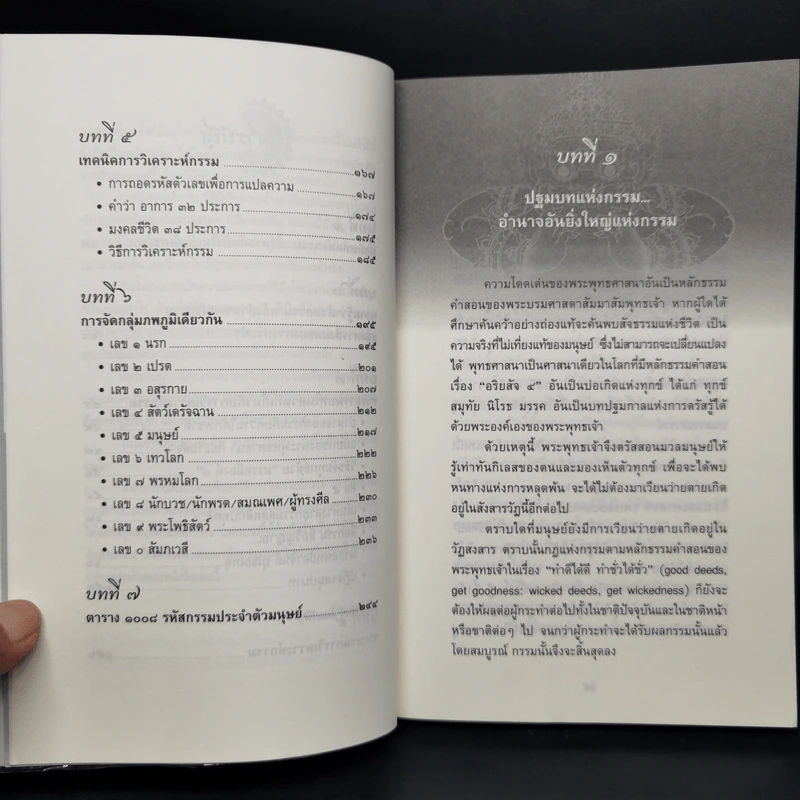 บทที่ ๕
เทคนิคการวิเคราะห์กรรม ๑๖๗
• การถอดรหัสตัวเลขเพื่อการแปลความ ๑๖๗
• คำว่า อาการ ๓๒ ประการ ๑๗๔
• มงคลชีวิต ๓๘ ประการ ๑๗๕
• วิธีการวิเคราะห์กรรม ๑๘๕
บทที่ ๖
การจัดกลุ่มภพภูมิเดียวกัน ๑๙๕
• เลข ๑ นรก ๑๙๕
• เลข ๒ เปรต ๒๐๑
• เลข ๓ อสุรกาย ๒๐๗
• เลข ๔ สัตว์เดรัจฉาน ๒๑๒
• เลข ๕ มนุษย์ ๒๑๗
• เลข ๖ เทวโลก ๒๒๒
• เลข ๗ พรหมโลก ๒๒๖
• เลข ๘ นักบวช/นักพรต/สมณเพศ/ผู้ทรงศีล ๒๓๐
• เลข ๙ พระโพธิสัตว์ ๒๓๓
• เลข ๐ สัมภเวสี ๒๓๖
บทที่ ๗
ตาราง ๑๐๐๘ รหัสกรรมประจำตัวมนุษย์ ๒๔๙
บทที่ ๑
ปฐมบทแห่งกรรม...
อำนาจอันยิ่งใหญ่แห่งกรรม
ความโดดเด่นของพระพุทธศาสนาอันเป็นหลักธรรม
คำสอนของพระบรมศาสดาสัมมาสัมพุทธเจ้า หากผู้ใดได้
ศึกษาค้นคว้าอย่างถ่องแท้จะค้นพบสัจธรรมแห่งชีวิต เป็น
ความจริงที่ไม่เที่ยงแท้ของมนุษย์ ซึ่งไม่สามารถจะเปลี่ยนแปลง
ได้ พุทธศาสนาเป็นศาสนาเดียวในโลกที่มีหลักธรรมคำสอน
เรื่อง “อริยสัจ ๔” อันเป็นบ่อเกิดแห่งทุกข์ ได้แก่ ทุกข์
สมุทัย นิโรธ มรรค อันเป็นบทปฐมกาลแห่งการตรัสรู้ได้
ด้วยพระองค์เองของพระพุทธเจ้า
ด้วยเหตุนี้ พระพุทธเจ้าจึงตรัสสอนมวลมนุษย์ให้
รู้เท่าทันกิเลสของตนและมองเห็นตัวทุกข์ เพื่อจะได้พบ
หนทางแห่งการหลุดพ้น จะได้ไม่ต้องมาเวียนว่ายตายเกิด
อยู่ในสังสารวัฏนี้อีกต่อไป
ตราบใดที่มนุษย์ยังมีการเวียนว่ายตายเกิดอยู่ใน
วัฏสงสาร ตราบนั้นกฎแห่งกรรมตามหลักธรรมคำสอนของ
พระพุทธเจ้าในเรื่อง “ทำดีได้ดี ทำชั่วได้ชั่ว” (good deeds,
get goodness: wicked deeds, get wickedness) ก็ยังจะ
ต้องให้ผลต่อผู้กระทำต่อไปทั้งในชาติปัจจุบันและในชาติหน้า
หรือชาติต่อๆ ไป จนกว่าผู้กระทำจะได้รับผลกรรมนั้นแล้ว
โดยสมบูรณ์ กรรมนั้นจึงจะสิ้นสุดลง